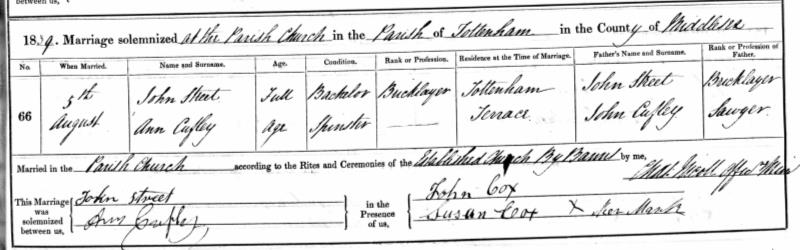 1839. Marriage solemnized at the Parish Church in the Parish of Tottenham in the County of Middlesex
No. When Married. Name and Surname. Age. Condition. Rank or Profession. Residence at the Time of Marriage. Father's Name and Surname. Rank or Profession of Father.
66 5th John Street Full Bachelor Bricklayer Tottenham John Street Bricklayer
August Ann Cufley Age Spinster — Terrace John Cufley Sawyer
Married in the Parish Church according to the Rites and Ceremonies of the Established Church By Banns by me,
This Marriage was solemnized between us, John Street Ann Cufley in the Presence of us, John Cox Susan Cox X Her Mark